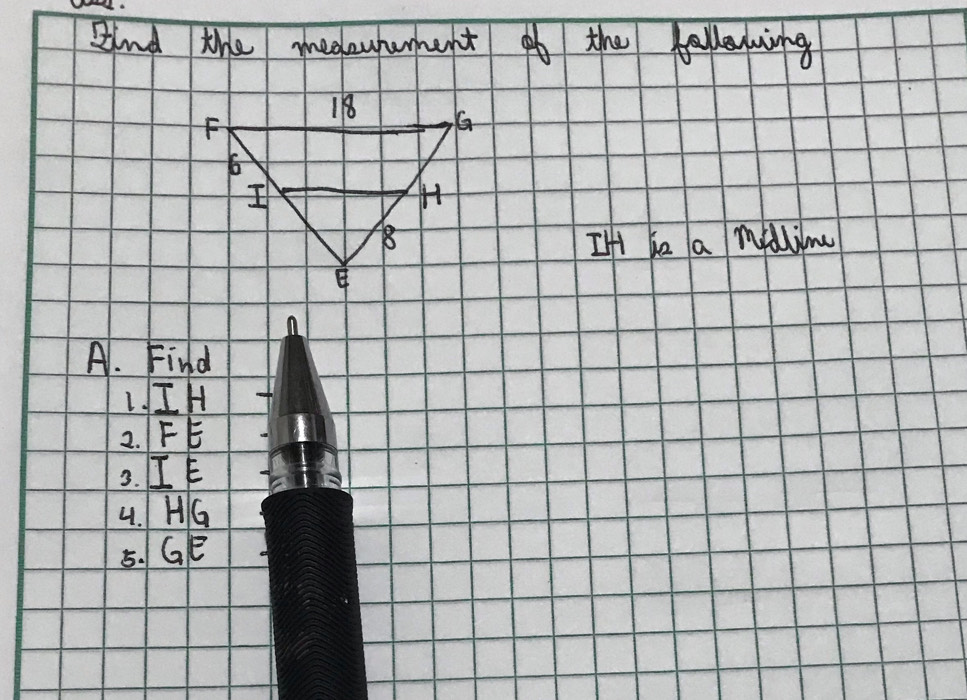 Find the measurement of the following
18
F
G
6
I
H
8
IH is a Midline
E
A. Find
1. IH -
2. FE -
3. IE -
4. HG -
5. GE -